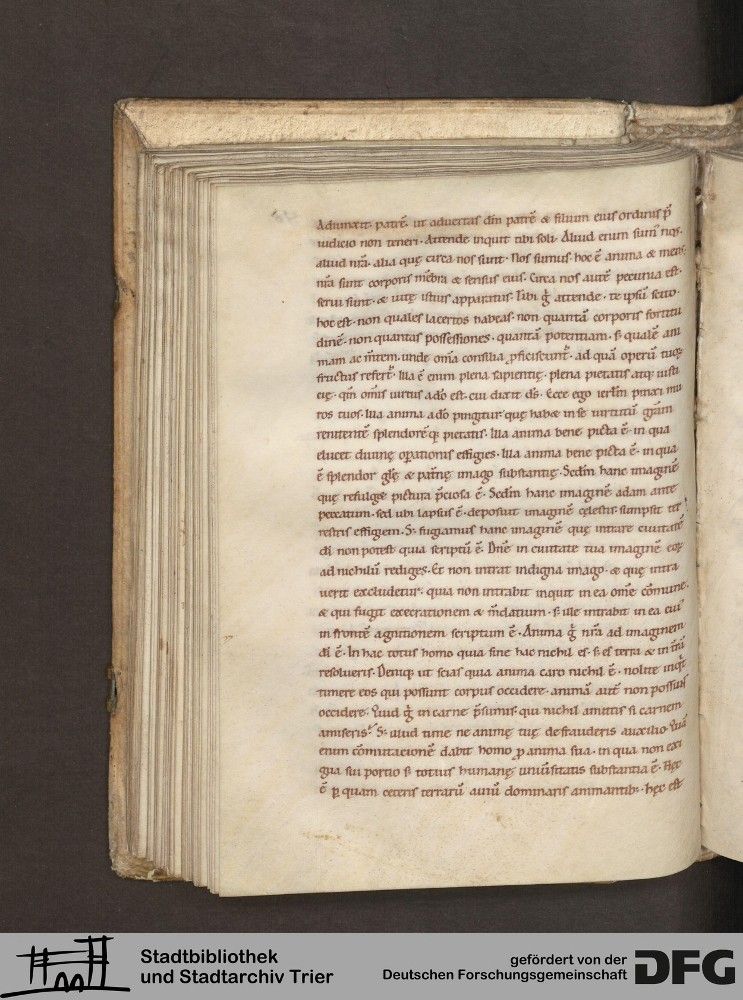 Adiunxit patrē. ut advertas dīm patrē & filium eius ordinis p̄
iudicio non teneri. Attende inquit tibi soli. Aliud enim sum' nos.
aliud nrā. alia quę circa nos sunt. Nos sumus. hoc ē anima & mens.
nrā sunt corporis mēbra & sensus eius. Circa nos autē pecunia est.
servi sunt. & vitę istius apparatus. Tibi g̊ attende. te ipsū scito.
hoc est. non quales lacertos habeas. non quantā corporis fortitu
dinē. non quantas possessiones. quantā potentiam. s; qualē ani
mam ac m̄tem. unde om̄a consilia ꝓficiscunt᷑. ad quā operū tuoꝝ
fructus refert᷑. Illa ē enim plena sapientię. plena pietatis atq; iusti
cię. qm̄ om̄is virtus a dō est. cui dixit d̄s. Ecce ego ierl̄m pinxi mu
ros tuos. Illa anima a dō pingitur. quę habet in se virtutū gr̄am
renitentē splendorēq; pietatis. Illa anima bene picta ē. in qua
elucet divinę oꝑationis effigies. Illa anima bene picta ē. in qua
ē splendor glę̄ & patn̄ę imago substantię. Sedm̄ hanc imaginē
quę refulge pictura p̄ciosa ē. Sedm̄ hanc imaginē adam ante
peccatum. sed ubi lapsus ē. deposuit imaginē cęlestis. sumpsit ter
restris effigiem. S; fugiamus hanc imaginē quę intrare civitatē
dī non potest quia scriptū ē. Dn̄e in civitate tua imaginē eoꝝ
ad nichilū rediges. Et non intrat indigna imago. & quę intra
verit excludetur. quia non intrabit inquit in ea om̄e cōmune.
& qui fugit execrationem & m̄datium. s; ille intrabit in ea cui'
in frontē agnitionem scriptum ē. Anima g̊ nrā ad imaginem
dī ē. In hac totus homo quia sine hac nichil es. s; es terra & in trā̄
resolveris. Deniq; ut scias quia anima caro nichil ē. nolite inq̊t
timere eos qui possunt corpus occidere. animā autē non possunt
occidere. Quid g̊ in carne p̄sumis. qui nichil amittis si carnem
amiseris? S; illud time ne animę tuę defrauderis auxilio. Quā
enim cōmutationē dabit homo ꝓ anima sua. in qua non exi
gua sui portio s; totius humanę univ̄sitatis substantia ē. Hęc
ē ꝑ quam ceteris terrarū aviū dominaris animantib;. hęc est
Stadtbibliothek
und Stadtarchiv Trier
gefördert von der
Deutschen Forschungsgemeinschaft
DFG